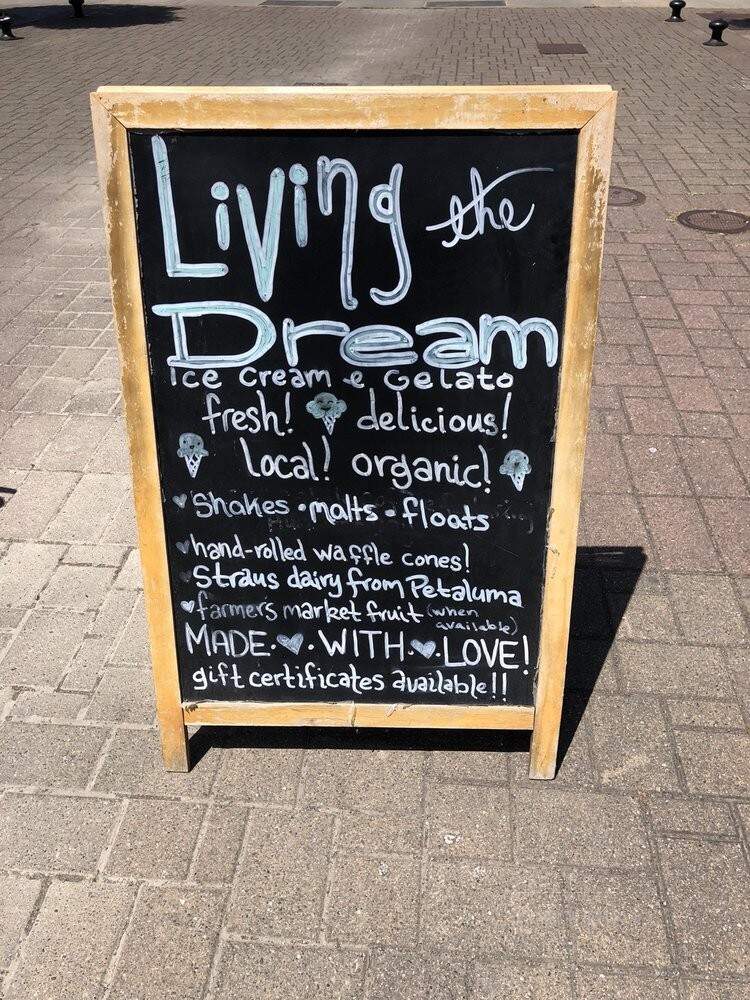 Living the
Dream
Ice Cream e Gelato
fresh! delicious!
local! organic!
Shakes • malts • floats
hand-rolled waffle cones!
Straus dairy from Petaluma
farmer's market fruit (when available)
MADE • WITH • LOVE!
gift certificates available!!